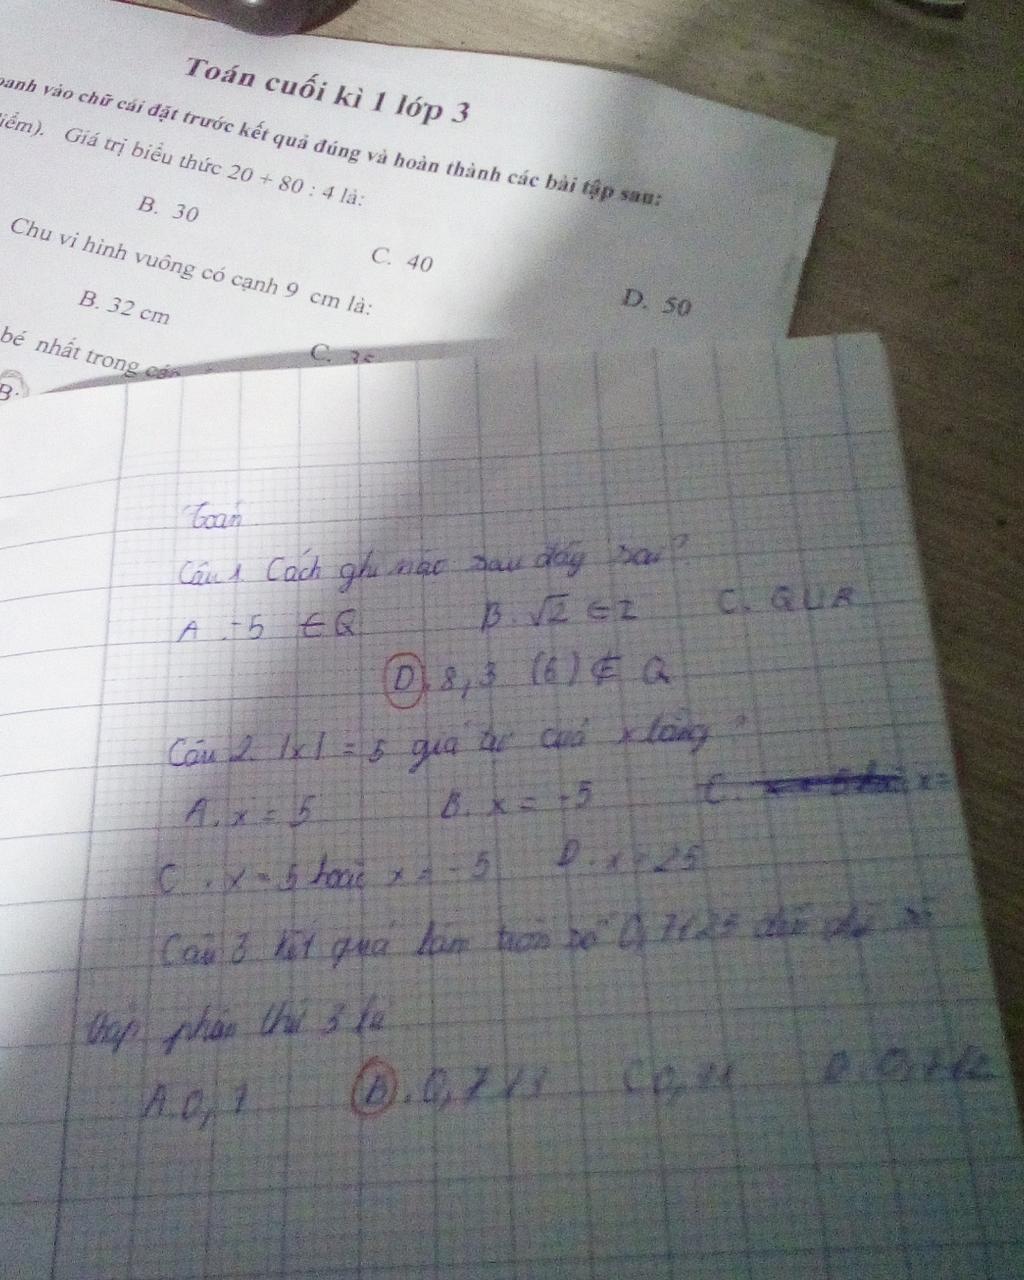 Toán cuối kì 1 lớp 3
oanh vào chữ cái đặt trước kết quả đúng và hoàn thành các bài tập sau:
iểm). Giá trị biểu thức 20 + 80 : 4 là:
B. 30
C. 40
D. 50
Chu vi hình vuông có cạnh 9 cm là:
B. 32 cm
C.
bé nhất trong
B.
Toán
Câu 1. Cách ghi nào sau đây sai?
A. -5 ∈ Q B. √2 ∈ Z C. Q R
D. 8,3 (6) ∉ Q
Câu 2. |x| = 5 giá trị của x bằng?
A. x = 5 B. x = -5 C. x =
C. x = 5 hoặc x = -5 D. x = 25
Câu 3 kết quả làm tròn số đến chữ số
thập phân thứ 3 là
A. 0, B. 0,7 C 0, D. 0,